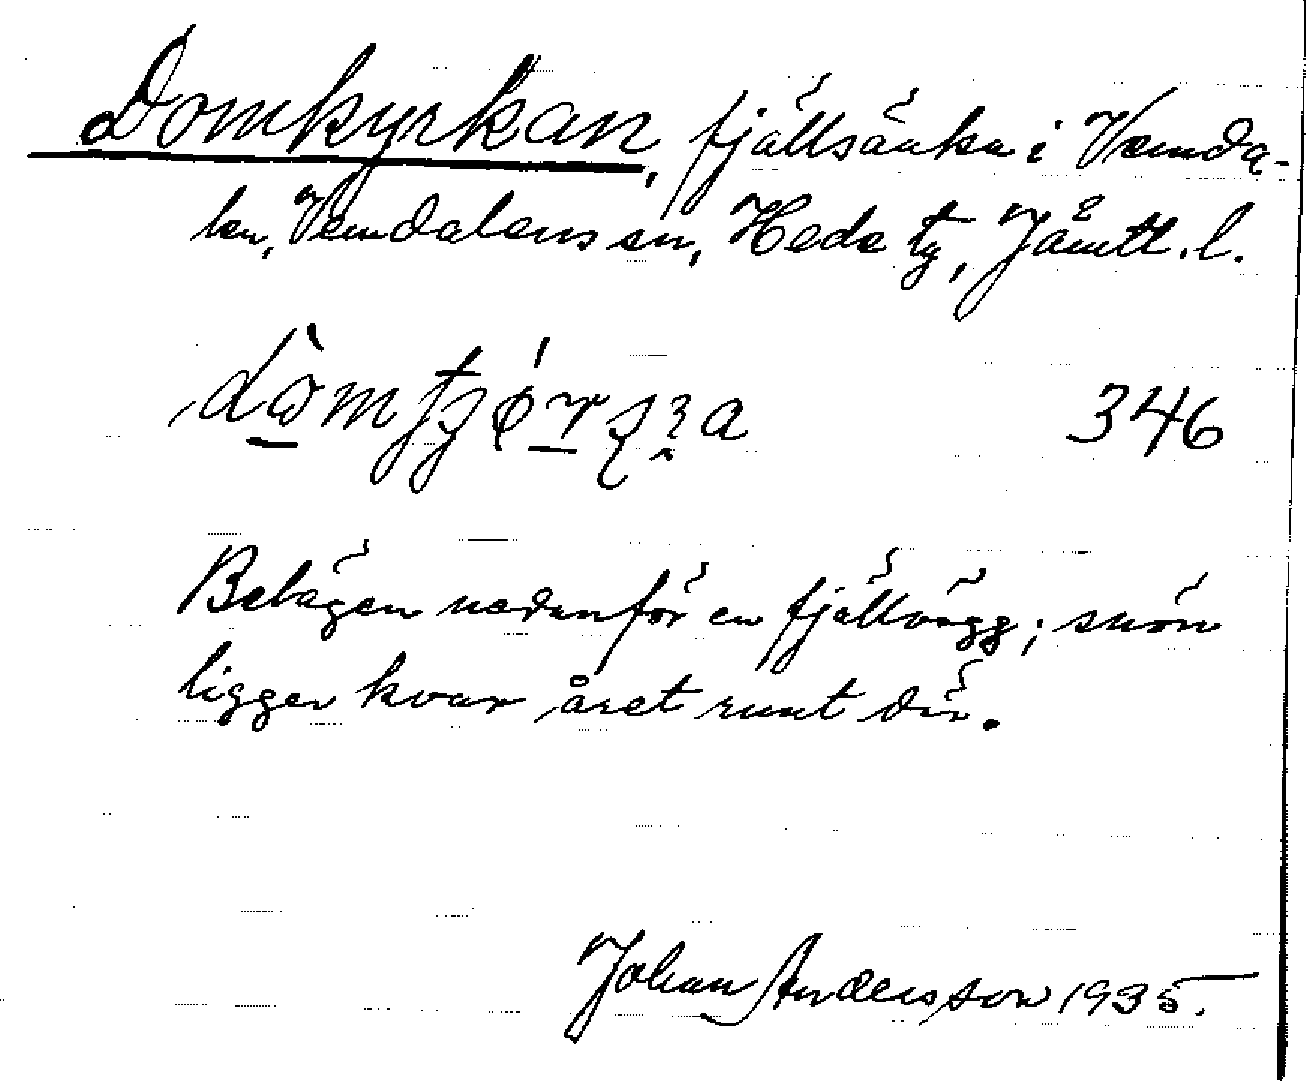 Domkyrkan, fjällsänka i Vemda-
len, Vemdalens sn, Heds tg, Jämtl. l.
346
Belägen nedanför en fjällvägg; snön
ligger kvar året runt där.
Johan Andersson 1935.